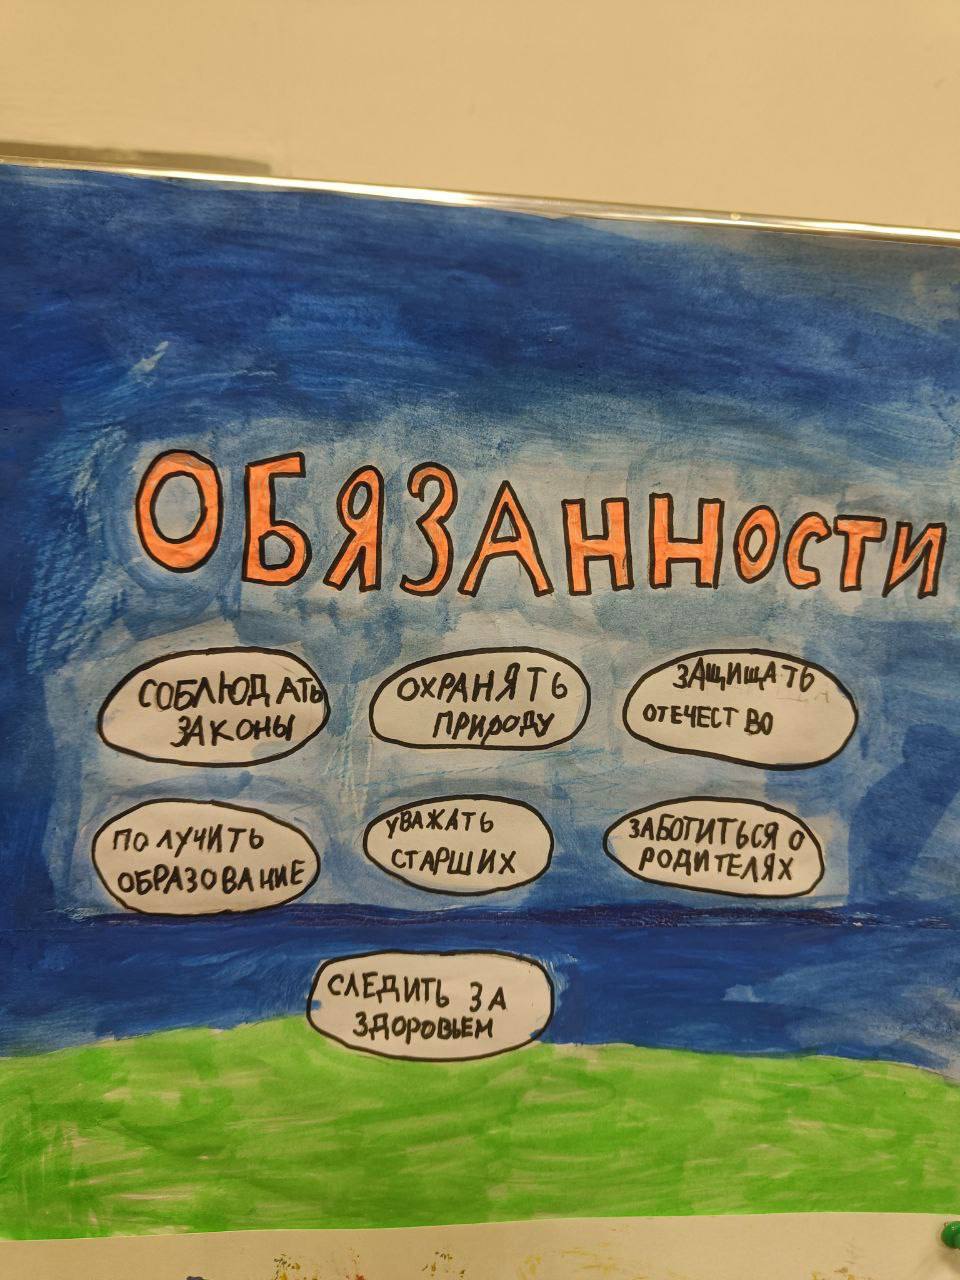 ОБЯЗАННОСТИ
СОБЛЮДАТЬ
ЗАКОНЫ
ОХРАНЯТЬ
ПРИРОДУ
ЗАЩИЩАТЬ
ОТЕЧЕСТВО
ПОЛУЧИТЬ
ОБРАЗОВАНИЕ
УВАЖАТЬ
СТАРШИХ
ЗАБОТИТЬСЯ О
РОДИТЕЛЯХ
СЛЕДИТЬ ЗА
ЗДОРОВЬЕМ